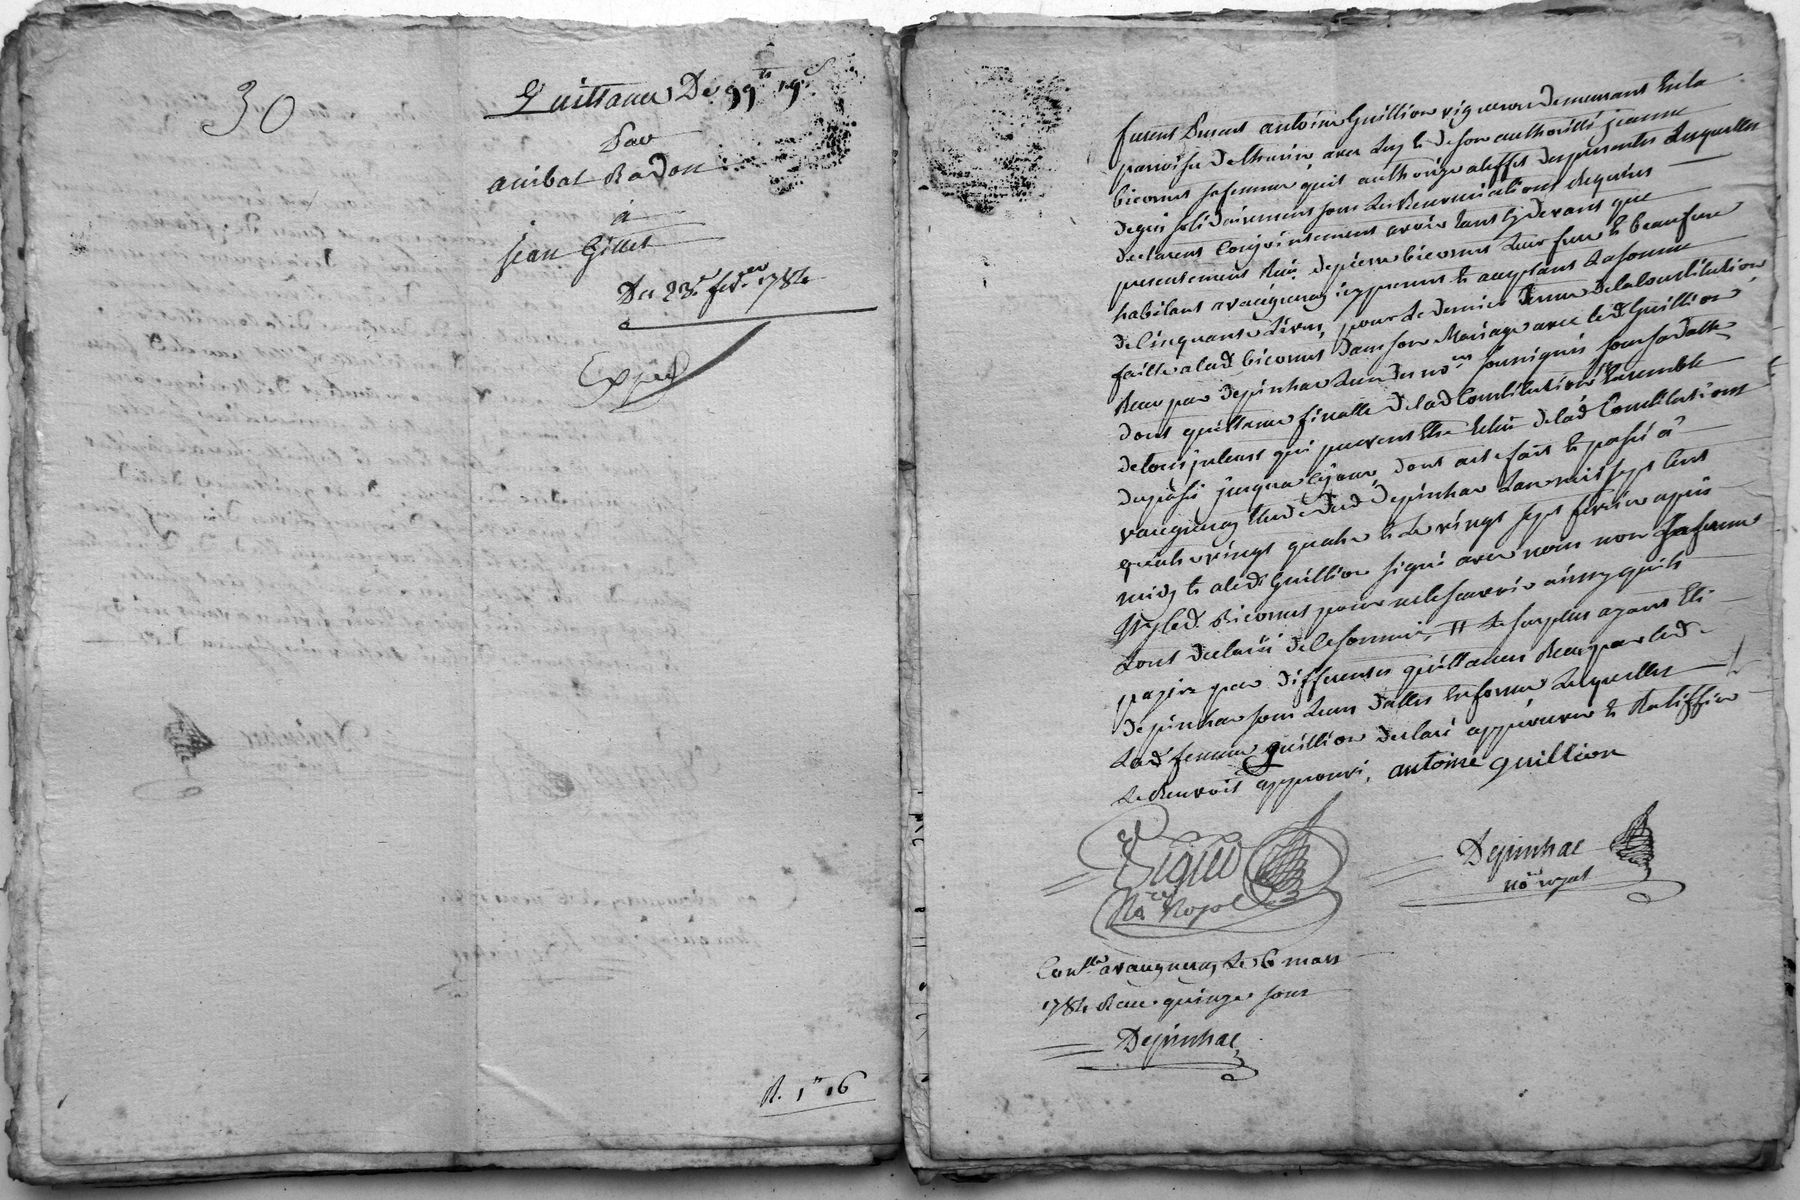 30
Quittance De 99lt 19s
Par
anibal Radon
à
jean Gillet
Du 23e fevrier 1784
Expéd
R. 1lt 16
furent Presents antoine Guillion vigneron demeurant En la
paroisse de thurin avec Luy & de son authoritté jeanne
bicornet sa femme qu'il authorize a leffet des presentes Lesquelles
de gré solidairement sous Les Renonciations Requises
declarent Conjointement avoir tant Cy devant que
presentement Reçu de pierre bicornet Leur frere & beaufrere
habitant a vaugneray icy present & acceptant La somme
de Cinquante Livres, pour Le dernier terme de la Constitution
faitte a lad bicornet dans son Mariage avec led Guillion
Reçu par depinhac Lun des nores soussignés sous sa datte
dont quittance finalle de lad Constitution Ensemble
de tous
du passé jusqua Ce jour, dont acte fait & passé a
vaugneray Etude dud depinhac Lan mil sept Cent
quatre vingt quatre & Le vingt sept fevrier après
midy & a led Guillion signé avec nous non Sa femme
Ny led. Bicornet pour ne le scavoir ainsy quils
Lont declaré de Ce sommés, # Le surplus ayant Eté
payé par differentes quittances Reçu par led
depinhac sous Leurs dattes En forme Lesquelles
Lad femme guillion declare approuver & Ratiffier
Le Renvoit approuvé, antoine guillion
Nre Royal
Depinhac
nore royal
Conlle a vaugneray Le 6 mars
1784 Reçu quinze sous
Depinhac